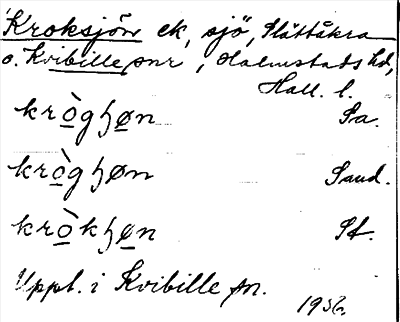 Kroksjön ek, sjö, Slättåkra
o. Kvibille snr, Halmstads hd,
Hall. l.
krògɧøn Sa.
krògɧøn Sand.
kròkɧøn St.
Uppt. i Kvibille sn.